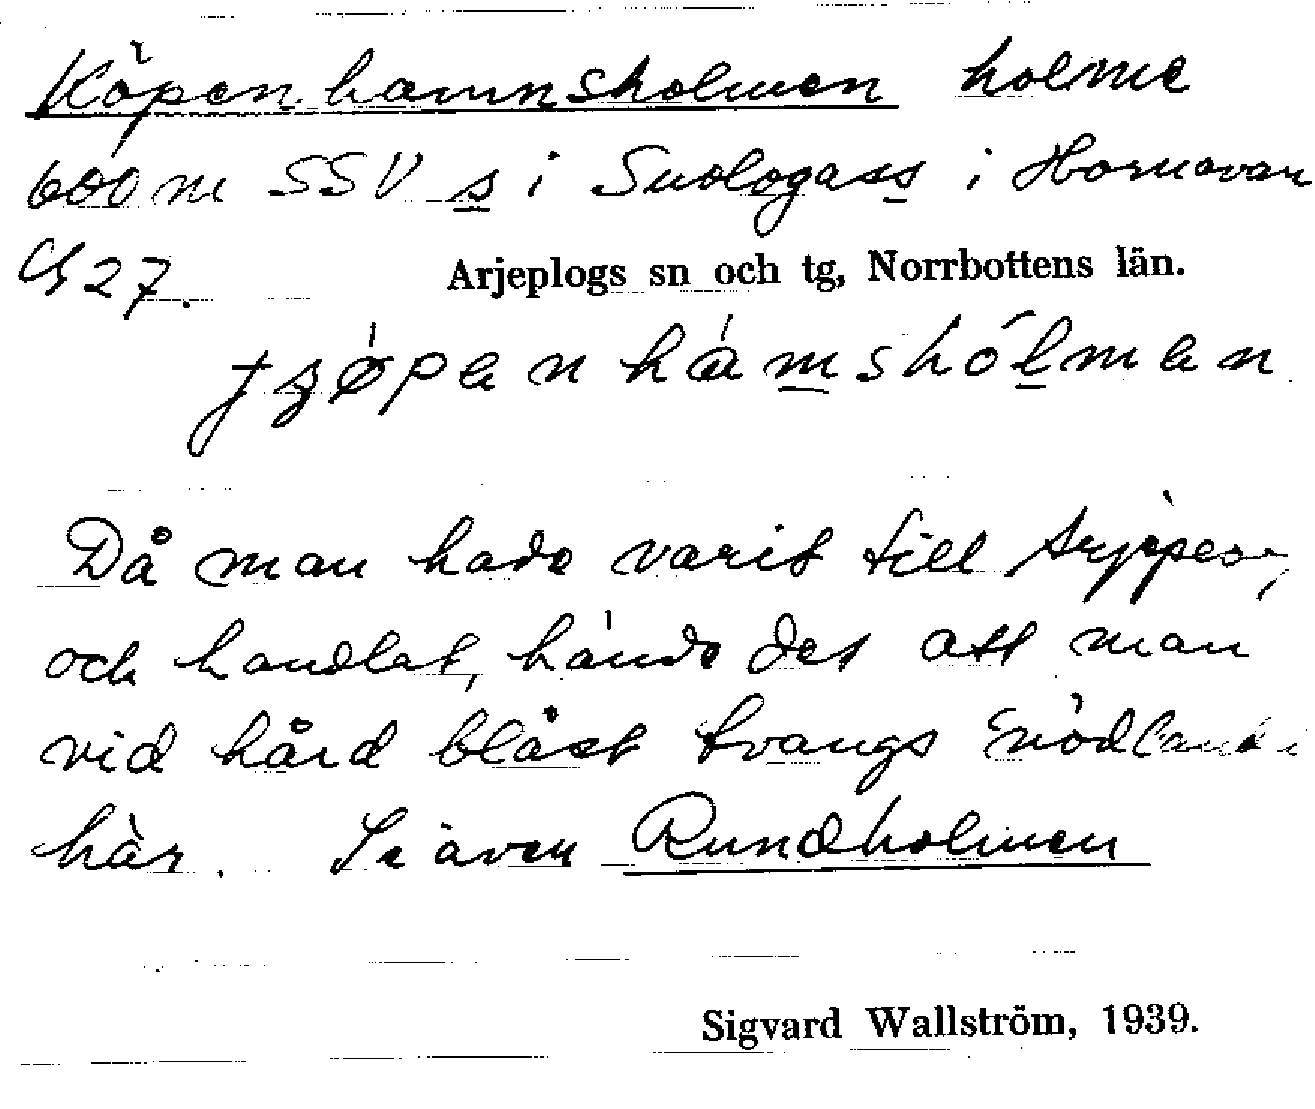 Köpenhamnsholmen holme
600 m SSV s i Suologass i Hornavan
27. Arjeplogs sn och tg, Norrbottens län.
Då man hade varit till
och handlat, hände det att man
vid hård blåst tvangs nödlanda
här. Se även Rundholmen
Sigvard Wallström, 1939.